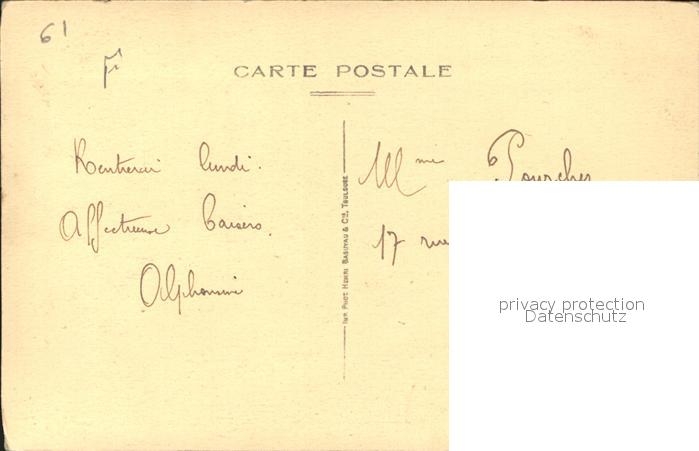 61
CARTE POSTALE
Rentrerai lundi.
Affectueux baisers.
Alphonsine
Mme Pourcher
17 rue
IMP. PHOT. HENRI BASUYAU & CIE, TOULOUSE
privacy protection
Datenschutz